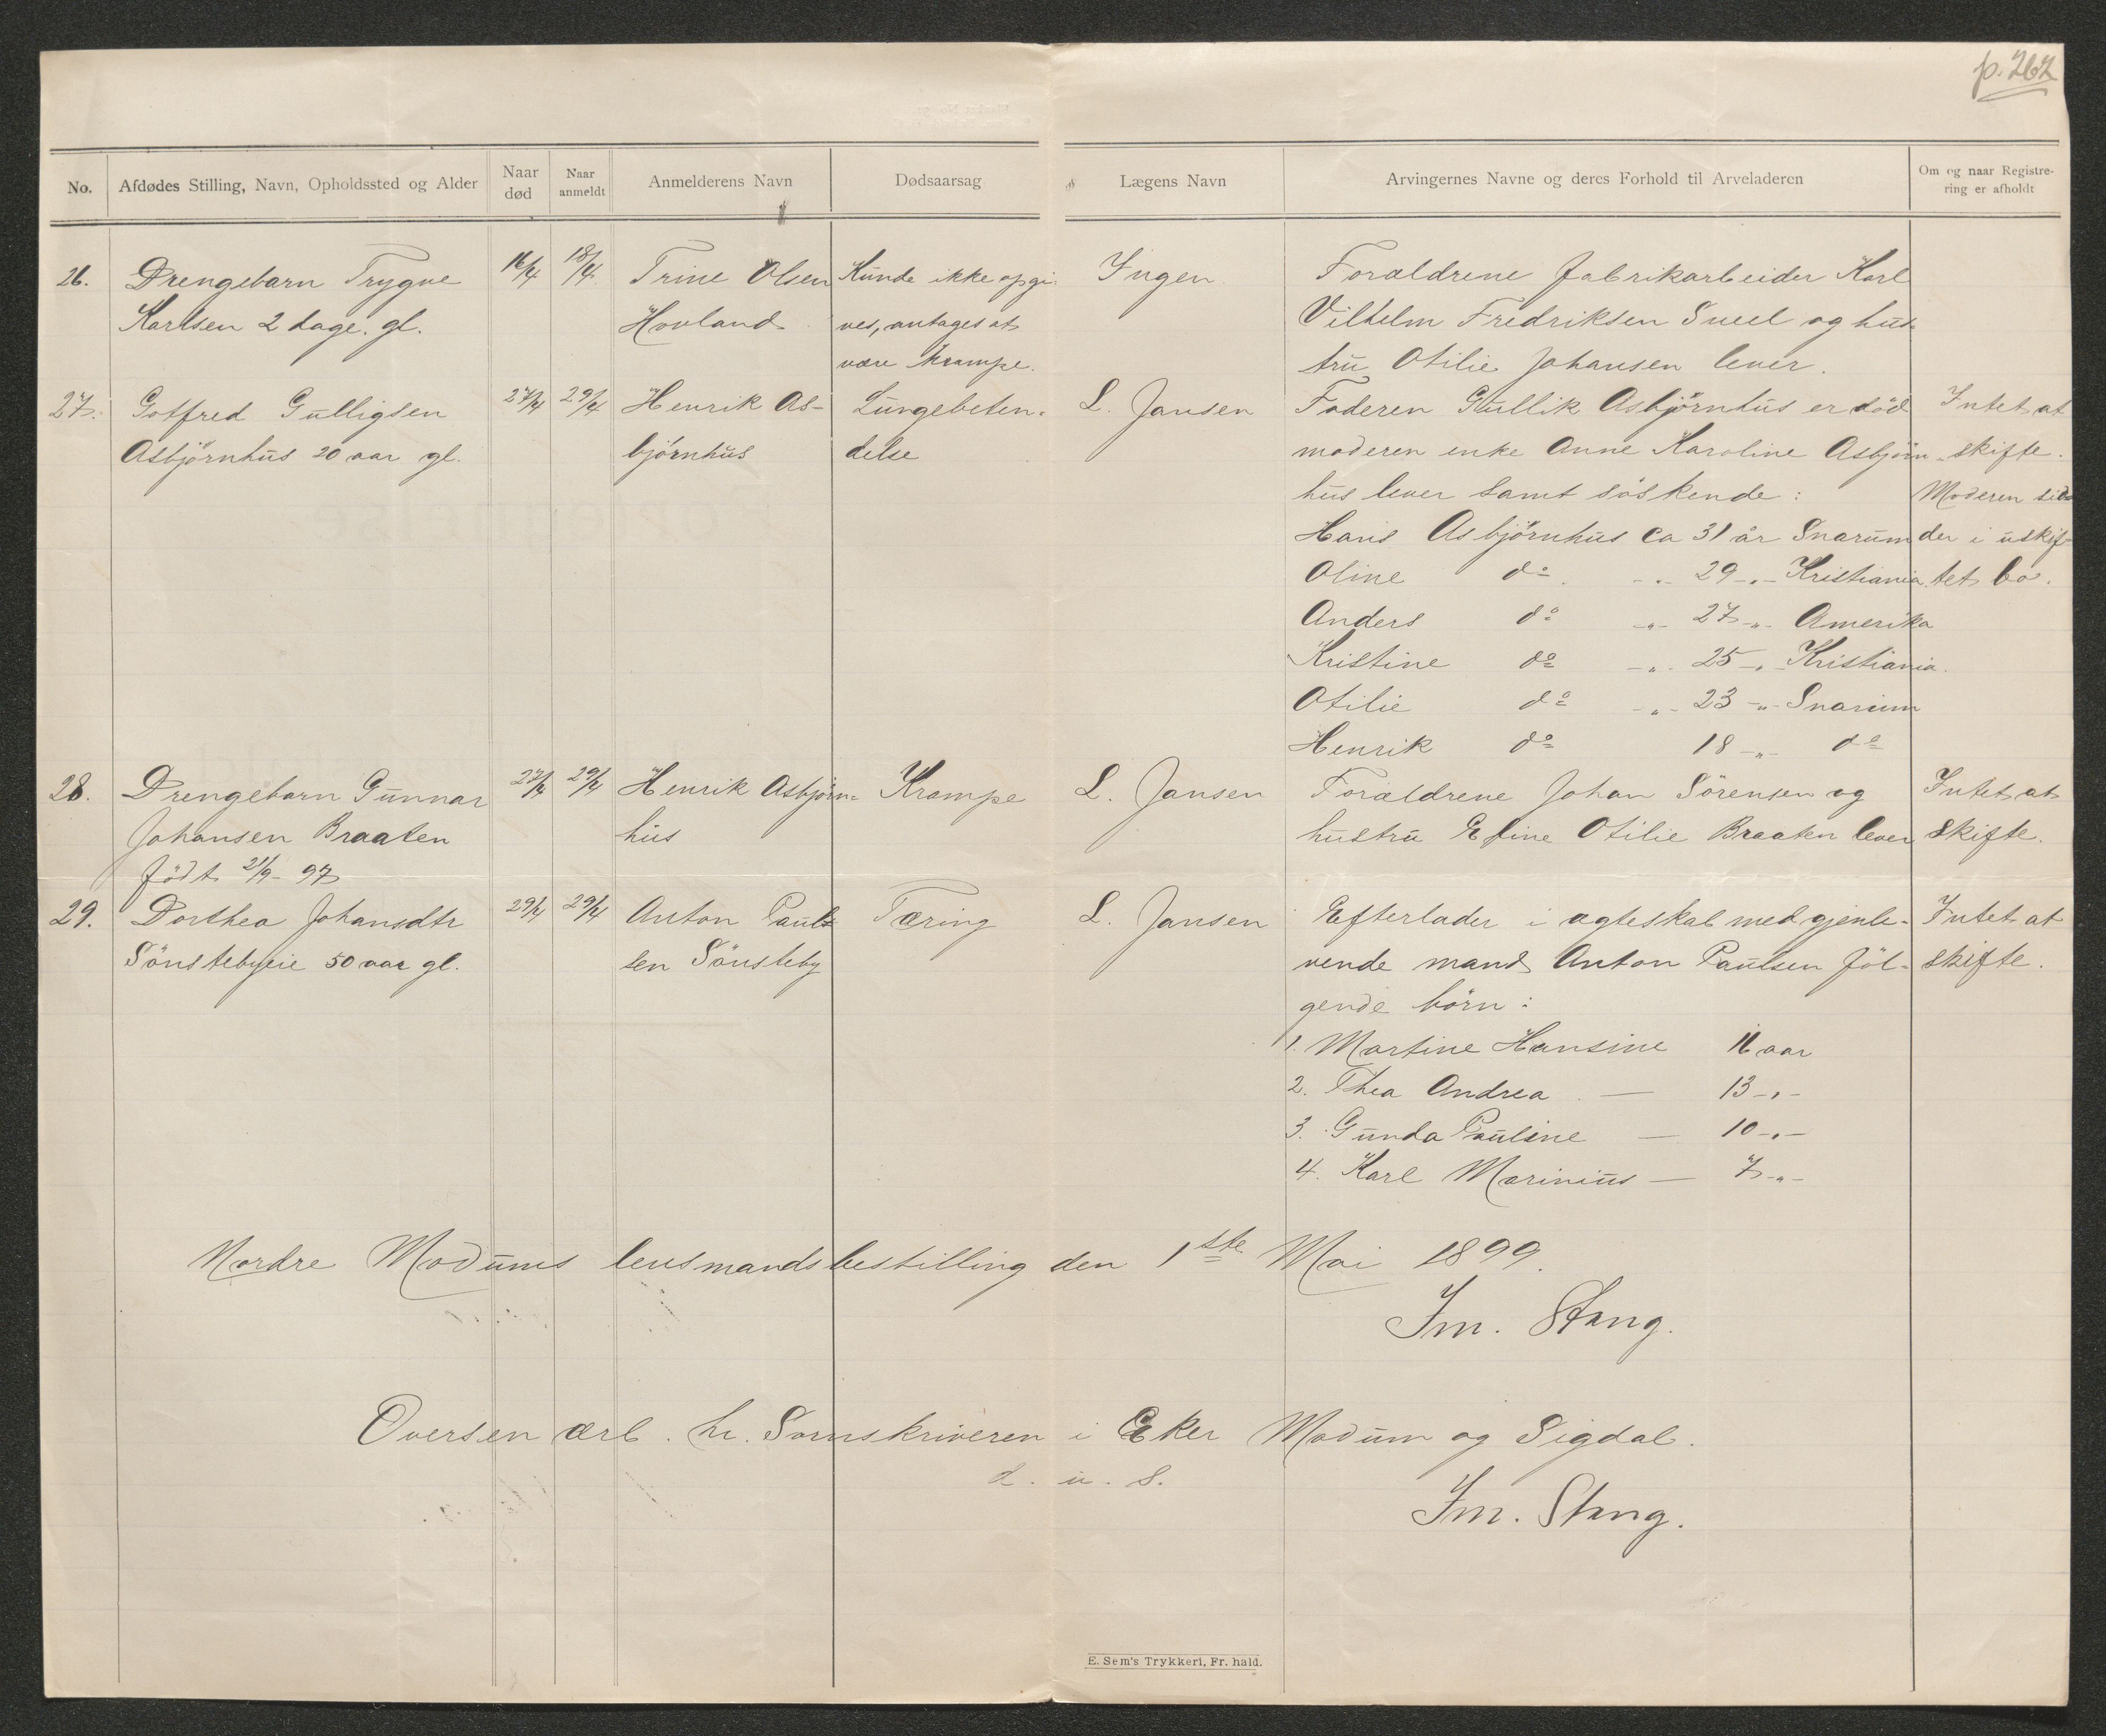 p. 262
No. Afdødes Stilling, Navn, Opholdssted og Alder Naar død Naar anmeldt Anmelderens Navn Dødsaarsag Lægens Navn Arvingernes Navne og deres Forhold til Arveladeren Om og naar Registrering er afholdt
26. Drengebarn Trygve 16/4 18/4 Trine Olsen Kunde ikke opgi- Ingen Forældrene fabrikarbeider Karl
Karlsen 2 dage. gl. Hovland ves, antages at Vilhelm Fredriksen og hus-
være krampe. tru Otilie Johansen lever.
27. Gotfred Gulligsen 27/4 29/4 Henrik As- Lungebeten- L. Jansen Faderen Gullik Asbjörnhus er död Intet at
Asbjörnhus 20 aar gl. björnhus delse moderen enke Anne Karoline Asbjörn- skifte.
hus lever samt söskende: Moderen sid-
Hans Asbjörnhus ca 31 år Snarum der i uskif-
Oline do -„- 29 -„- Kristiania tet bo.
Anders do -„- 27 -„- Amerika
Kristine do -„- 25 -„- Kristiania.
Otilie do -„- 23 -„- Snarum
Henrik do 18 -„- do
28. Drengebarn Gunnar 27/4 29/4 Henrik Asbjörn- Krampe L. Jansen Forældrene Johan Sörensen og Intet at
Johansen Braaten hus hustru Otilie Braaten lever skifte.
födt 21/9 - 97
29. Dorthea Johansdtr 29/4 29/4 Anton Paul- Tæring L. Jansen Efterlader i ægteskab med gjenle- Intet at
Sönstebyeie 50 aar gl. sen Sönsteby vende mand Anton Paulsen föl- skifte.
gende börn:
1. Martine Hansine 16 aar
2. Thea Andrea — 13 -„-
3. Gunda Pauline — 10 -„-
4. Karl Marinius — 7 -„-
Nordre Modums lensmandsbestilling den 1ste Mai 1899.
Im. Stang.
Oversen ærb. hr. Sornskriveren i Eker Modum og Sigdal.
d. u. s.
Im. Stang.
E. Sem's Trykkeri, Fr. hald.